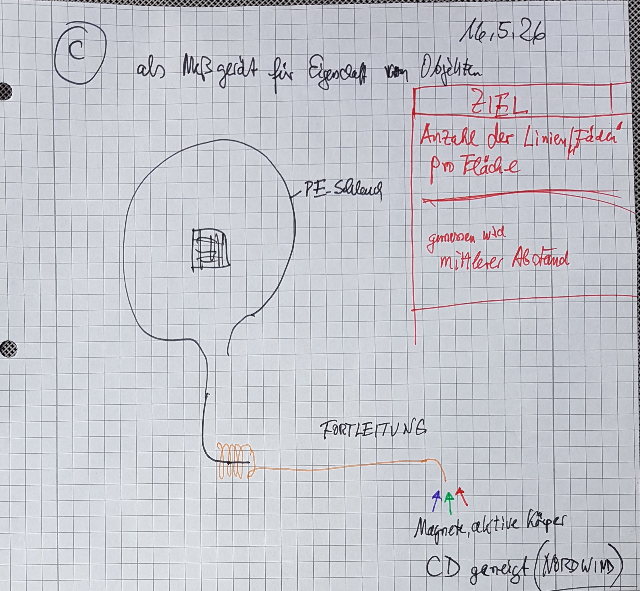 16.5.26
C
als Meßgerät für Eigenschaft von Objekten
ZIEL
Anzahl der Linien/„Fäden“
pro Fläche
PE-Schlauch
gemessen wird
mittlerer Abstand
FORTLEITUNG
Magnete, aktive Körper
CD geneigt (NORDWIND)